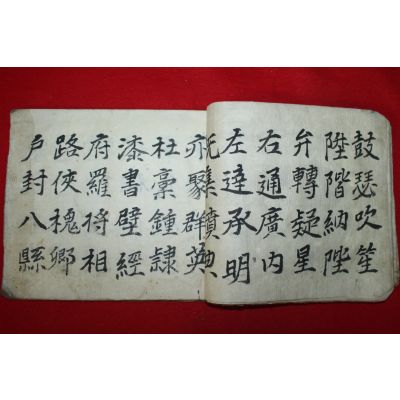 鼓瑟吹笙
陞階納陛
弁轉疑星
右通廣内
左達承明
旣集墳典
亦聚群英
杜稾鍾隷
漆書壁經
府羅將相
路俠槐卿
戶封八縣